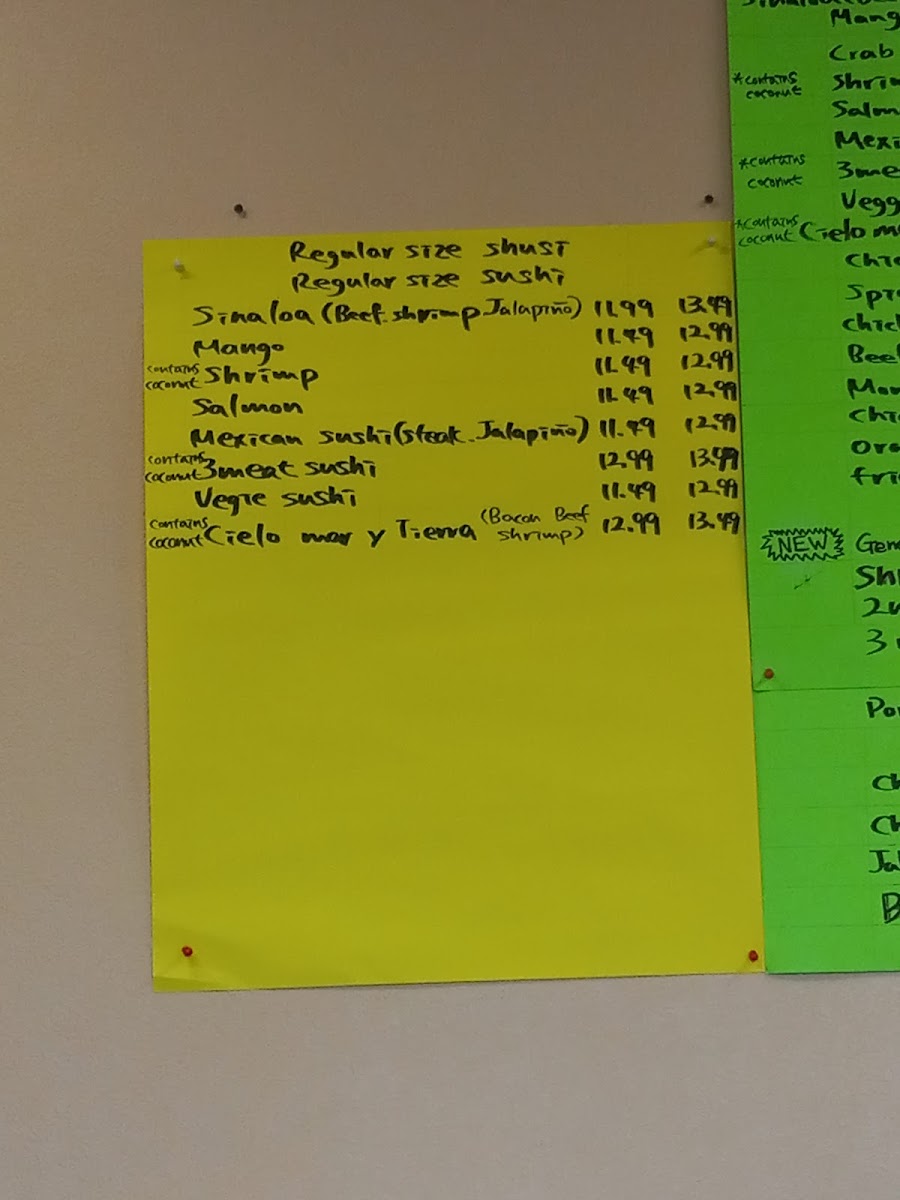 Regular size shusi
Regular size sushi
Sinaloa (Beef. shrimp Jalapiño) 11.99 13.49
Mango 11.49 12.99
contains coconut Shrimp 11.49 12.99
Salmon 11.49 12.99
Mexican sushi (steak. Jalapiño) 11.49 12.99
contains coconut 3meat sushi 12.99 13.49
Vegie sushi 11.49 12.99
contains coconut Cielo mar y Tierra (Bacon Beef shrimp) 12.99 13.49
Mang
Crab
*contains coconut Shri
Salm
Mexi
*contains coconut 3me
Vegg
*contains coconut Cielo m
Chic
Spr
Chic
Beef
Mon
Chi
Ora
fri
NEW Gen
Shr
3
Po
Ch
Ch
Ja
B